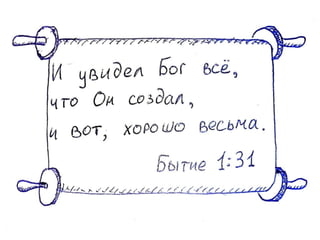 И увидел Бог всё,
что Он создал,
и вот, хорошо весьма.
Бытие 1:31